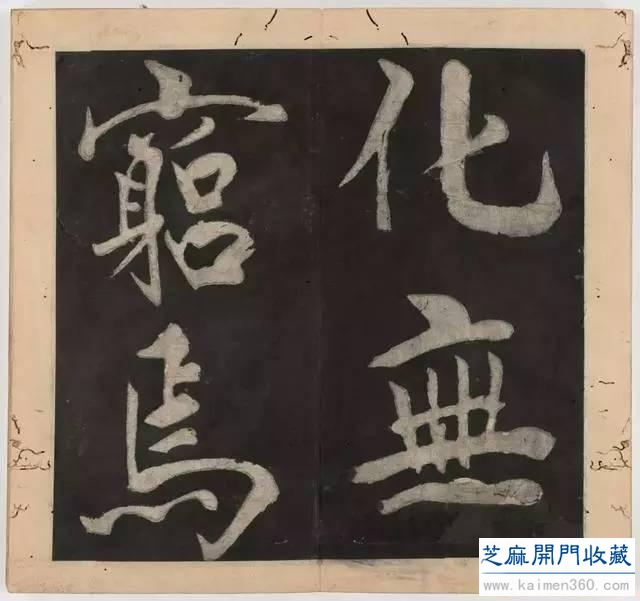 化無
窮焉
芝麻開門收藏
www.kaimen360.com